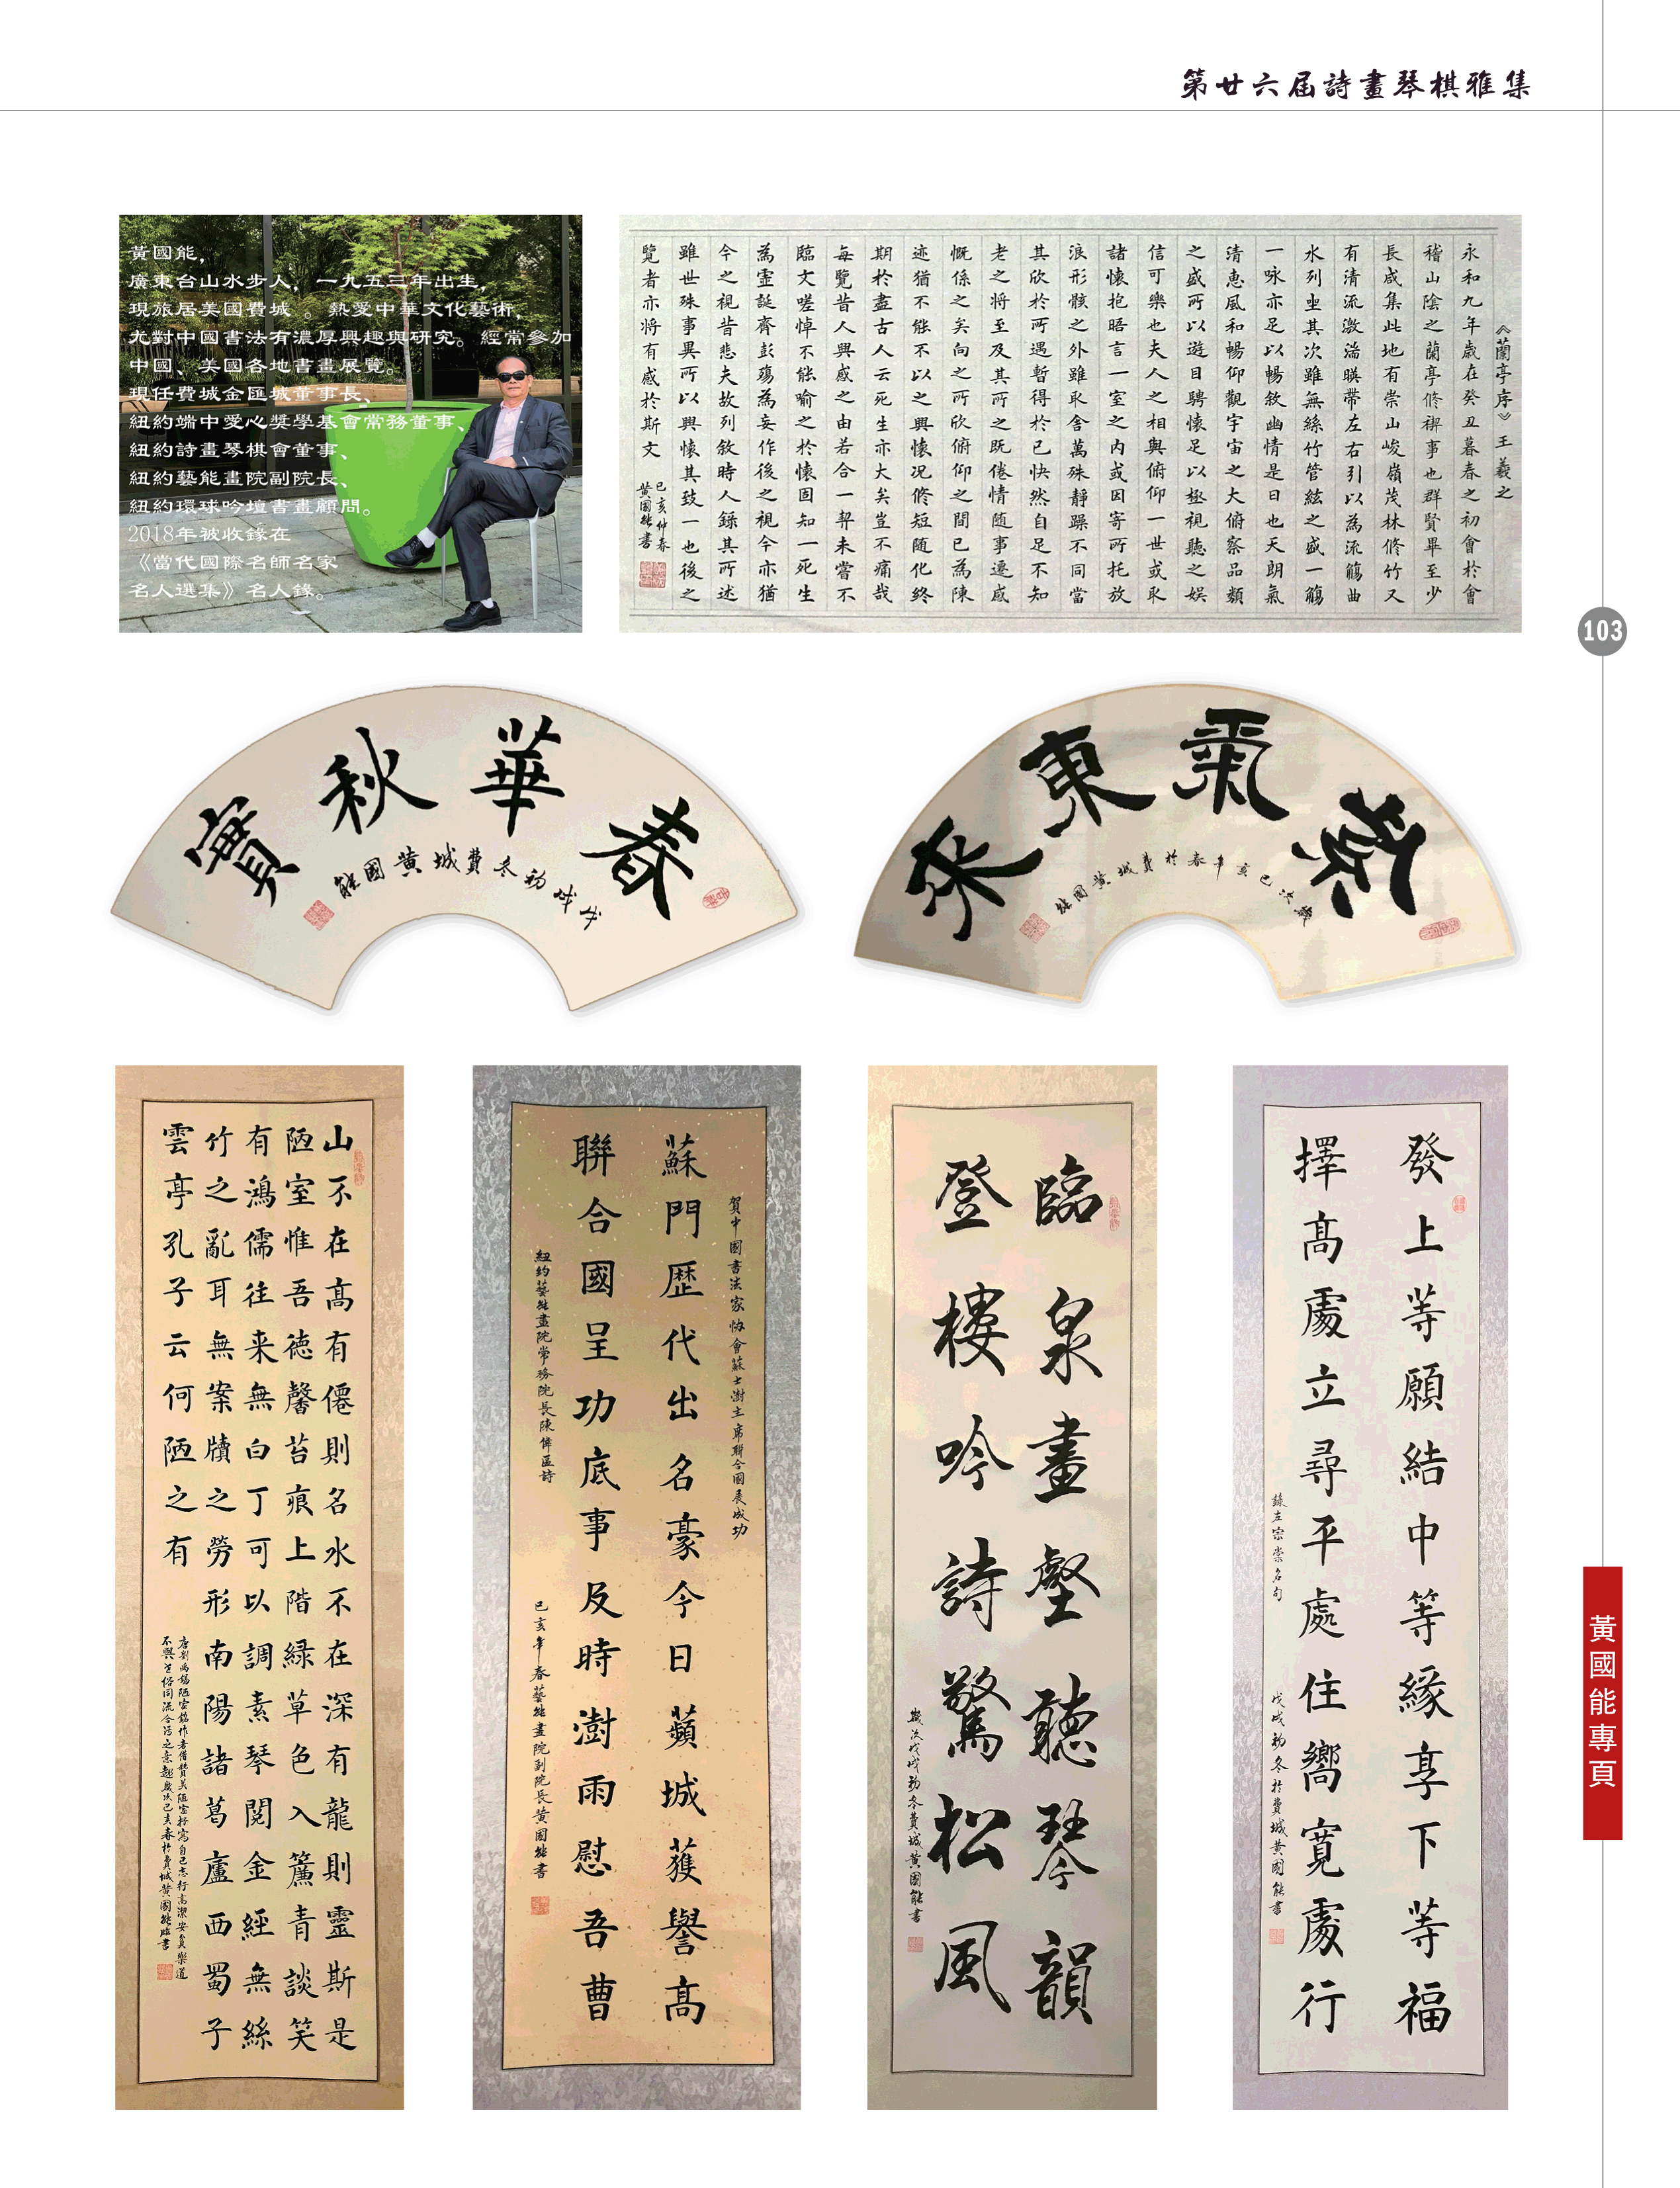 第廿六屆詩畫琴棋雅集
黃國能,
廣東台山水步人, 一九五三年出生,
現旅居美國費城 。 熱愛中華文化藝術,
尤對中國書法有濃厚興趣與研究。 經常參加
中國、美國各地書畫展覽。
現任費城金匯城董事長、
紐約端中愛心獎學基會常務董事、
紐約詩畫琴棋會董事、
紐約藝能畫院副院長、
紐約環球吟壇書畫顧問。
2018年被收錄在
《當代國際名師名家
名人選集》名人錄。
《蘭亭序》王羲之
永和九年歲在癸丑暮春之初會於會
稽山陰之蘭亭修禊事也群賢畢至少
長咸集此地有崇山峻嶺茂林修竹又
有清流激湍暎帶左右引以為流觴曲
水列坐其次雖無絲竹管絃之盛一觴
一咏亦足以暢敘幽情是日也天朗氣
清惠風和暢仰觀宇宙之大俯察品類
之盛所以遊目騁懷足以極視聽之娛
信可樂也夫人之相與俯仰一世或取
諸懷抱晤言一室之內或因寄所托放
浪形骸之外雖取舍萬殊靜躁不同當
其欣於所遇暫得於己快然自足不知
老之將至及其所之既倦情隨事遷感
慨係之矣向之所欣俯仰之間已為陳
迹猶不能不以之興懷況修短隨化終
期於盡古人云死生亦大矣豈不痛哉
每覽昔人興感之由若合一契未嘗不
臨文嗟悼不能喻之於懷固知一死生
為虛誕齊彭殤為妄作後之視今亦猶
今之視昔悲夫故列敘時人錄其所述
雖世殊事異所以興懷其致一也後之
覽者亦將有感於斯文
己亥仲春
黃國能書
103
春華秋實
戊戌初冬費城黃國能
紫氣東來
歲次己亥年春於費城黃國能
山不在高有僊則名水不在深有龍則靈斯是
陋室惟吾德馨苔痕上階綠草色入簾青談笑
有鴻儒往来無白丁可以調素琴閱金經無絲
竹之亂耳無案牘之勞形南陽諸葛廬西蜀子
雲亭孔子云何陋之有
唐劉禹錫陋室銘作者借贊美陋室抒寫自己志行高潔安貧樂道
不與世俗同流合污之意趣歲次己亥春於費城黃國能臨書
賀中國書法家協會蘇士澍主席聯合國展成功
蘇門歷代出名豪今日蘋城獲譽高
聯合國呈功底事及時澍雨慰吾曹
紐約藝能畫院常務院長陳偉區詩
己亥年春藝能畫院副院長黃國能書
臨泉畫壑聽琴韻
登樓吟詩驚松風
歲次戊戌初冬費城黃國能書
發上等願結中等緣享下等福
擇高處立尋平處住嚮寬處行
錄左宗棠名句
戊戌初冬於費城黃國能書
黃國能專頁